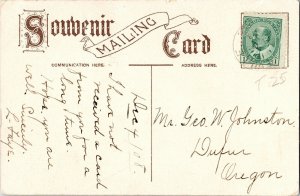 Souvenir
MAILING
Card
COMMUNICATION HERE.
ADDRESS HERE.
Dec 4 / 05.
I have not
received a card
from you for a
long time.
Hope you are
well.
Mr. Geo. W. Johnston
Dufur
Oregon